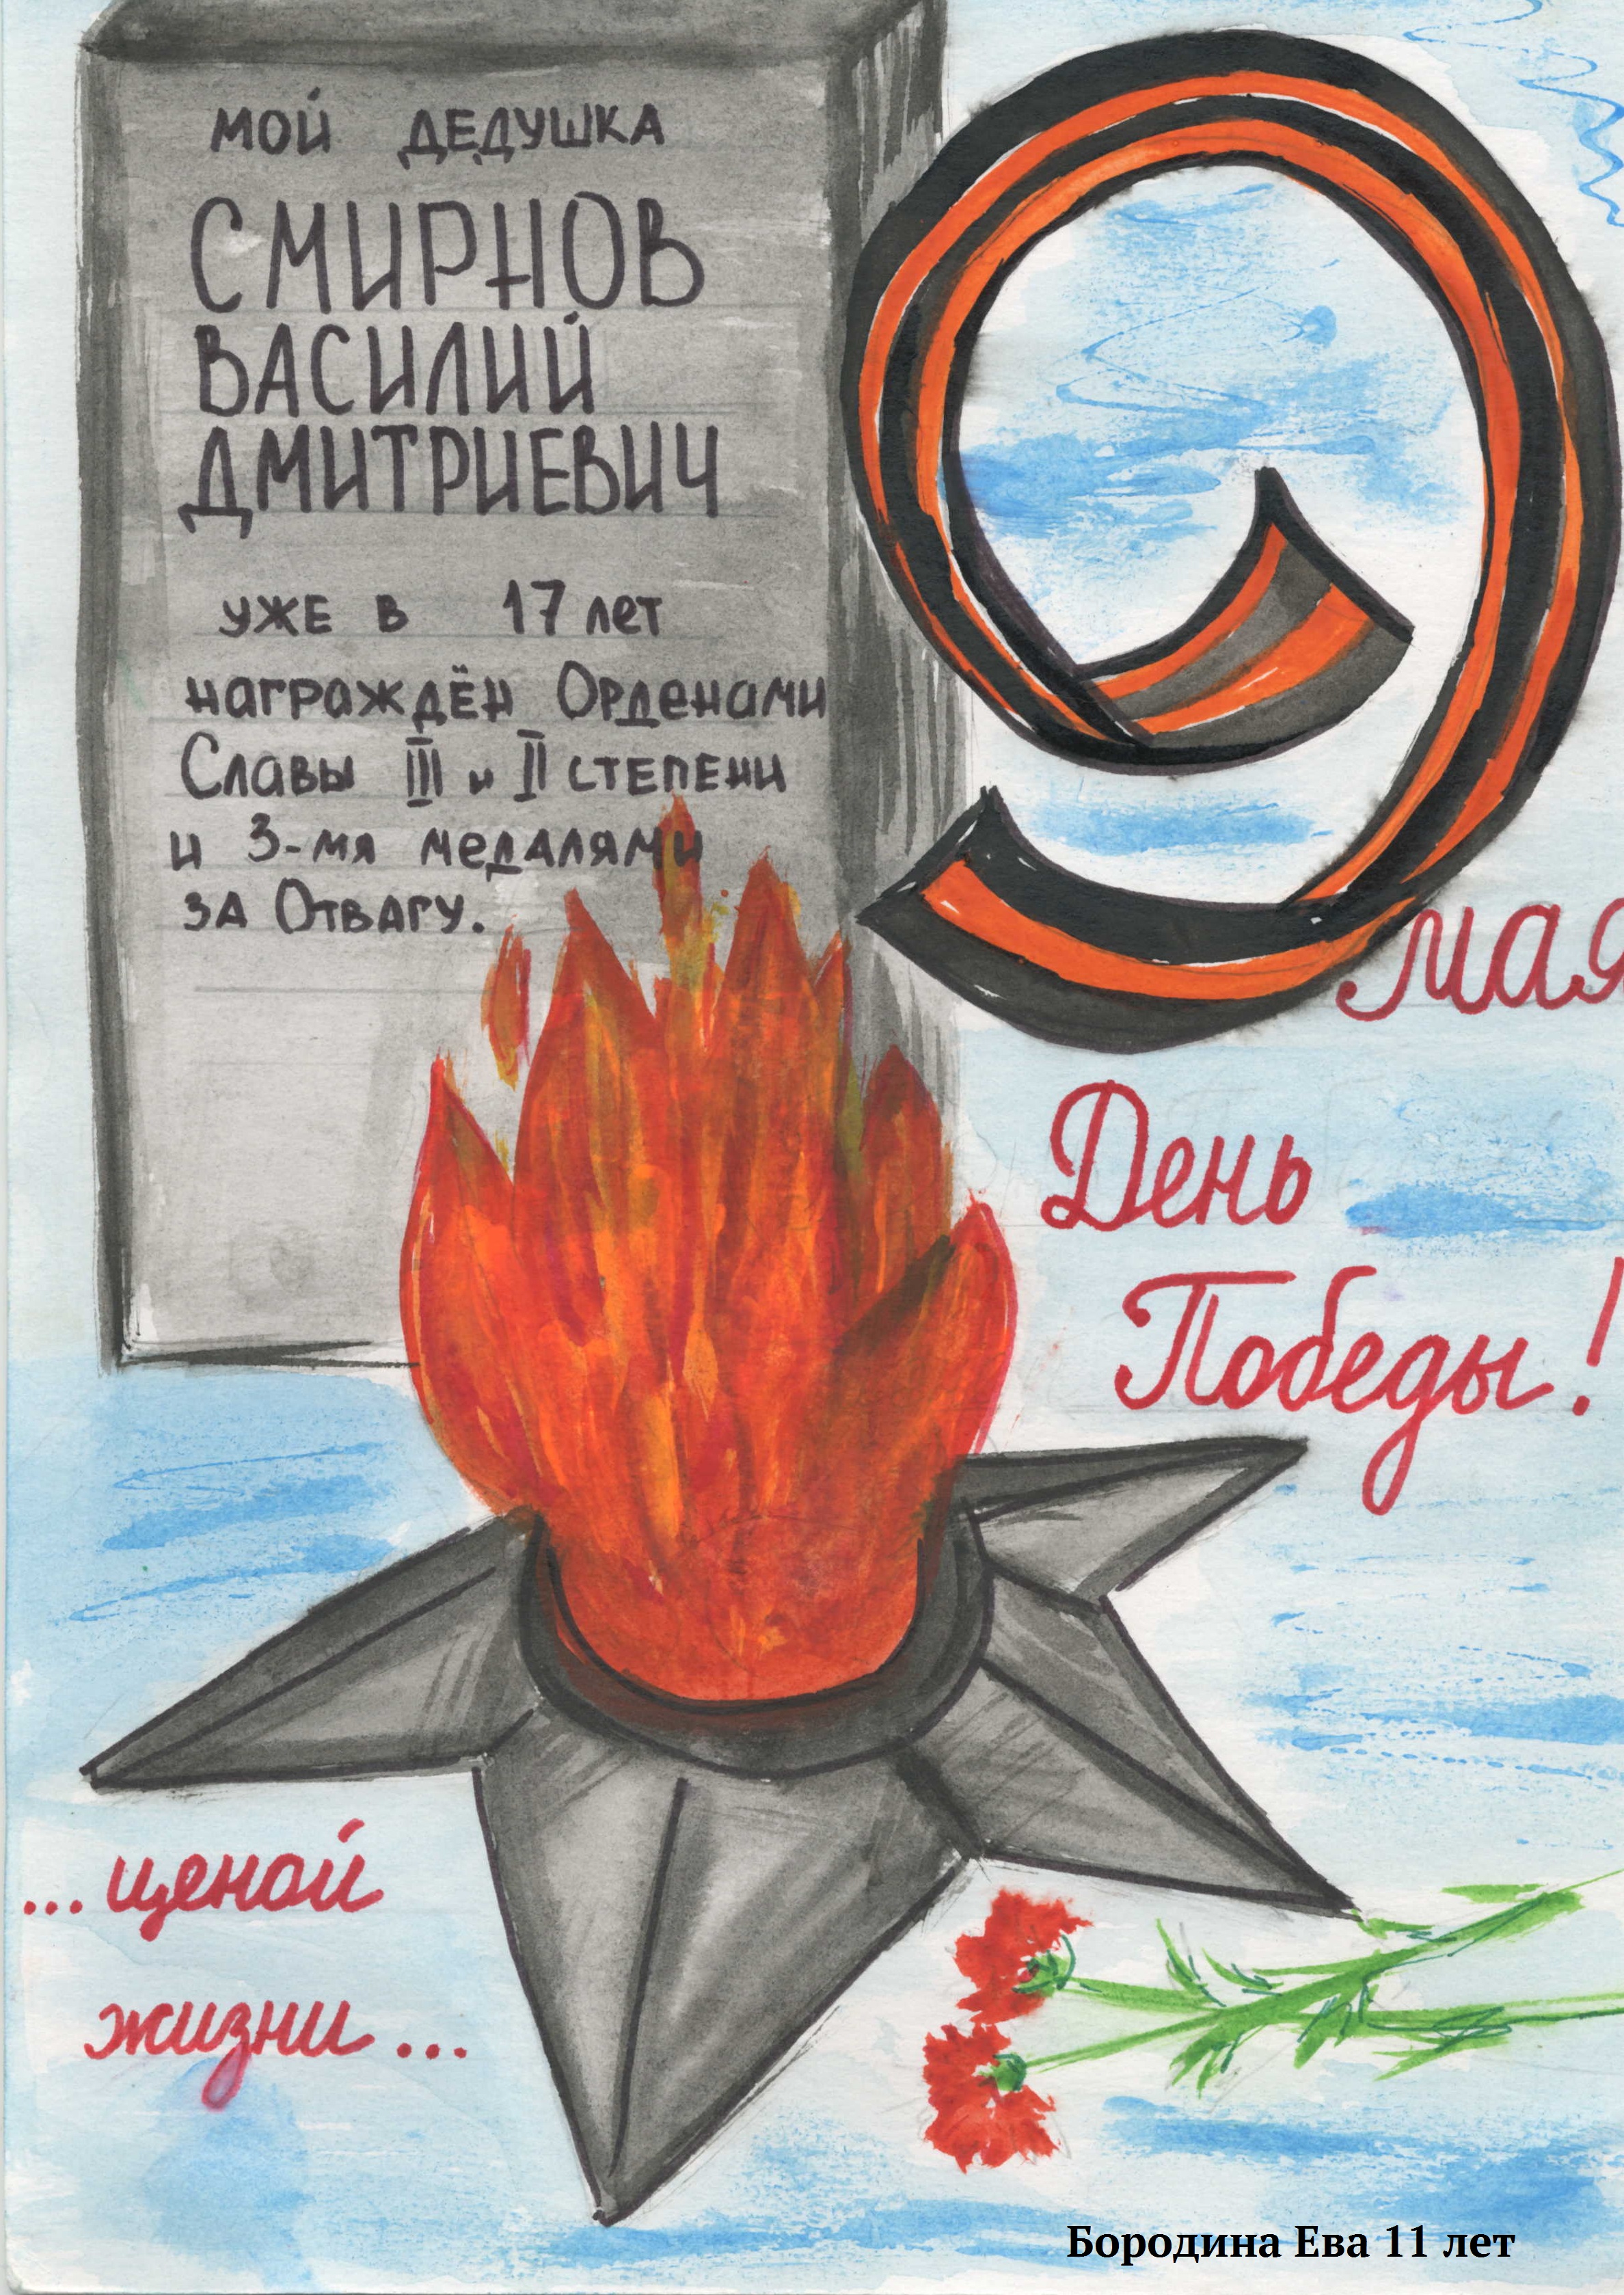 мой дедушка
СМИРНОВ
ВАСИЛИЙ
ДМИТРИЕВИЧ
уже в 17 лет
награждён Орденами
Славы III и II степени
и 3-мя медалями
за Отвагу.
9
мая
День
Победы!
...ценой
жизни...
Бородина Ева 11 лет